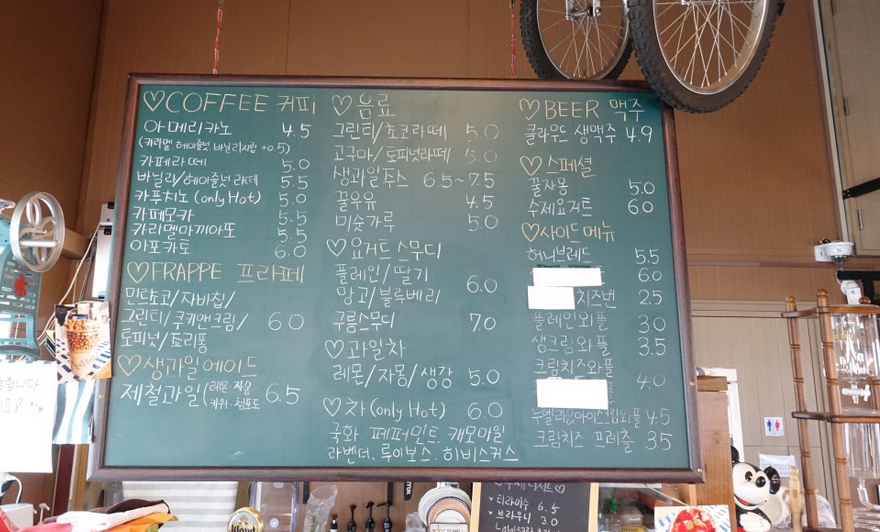 ♡COFFEE 커피
아메리카노 4.5
(카라멜 헤이즐넛 바닐라시럽 +0.5)
카페라떼 5.0
바닐라/헤이즐넛 라떼 5.5
카푸치노 (only Hot) 5.0
카페모카 5.5
카라멜마끼아또 5.5
아포카토 6.0
♡FRAPPE 프라페
민트쵸코/자바칩/
그린티/쿠키앤크림/ 6.0
토피넛/요리퐁
♡생과일에이드
제철과일(레몬 자몽 6.5
키위.청포도
♡음료
그린티/쵸코라떼 5.0
고구마/토피넛라떼 5.0
생과일주스 6.5~7.5
꿀우유 4.5
미숫가루 5.0
♡요거트스무디
플레인/딸기
망고/블루베리 6.0
구름스무디 7.0
♡과일차
레몬/자몽/생강 5.0
♡차(only Hot) 6.0
국화 페퍼민트. 캐모마일
라벤더. 루이보스. 히비스커스
♡BEER 맥주
클라우드 생맥주 4.9
♡스페셜
꿀자몽 5.0
수제요거트 6.0
♡사이드메뉴
허니브레드 5.5
6.0
치즈번 2.5
플레인와플 3.0
생크림와플 3.5
크림치즈와플
4.0
누텔라&아이스크림와플 4.5
크림치즈 프레즐 3.5
티라미수 6.5
브라우니 3.0